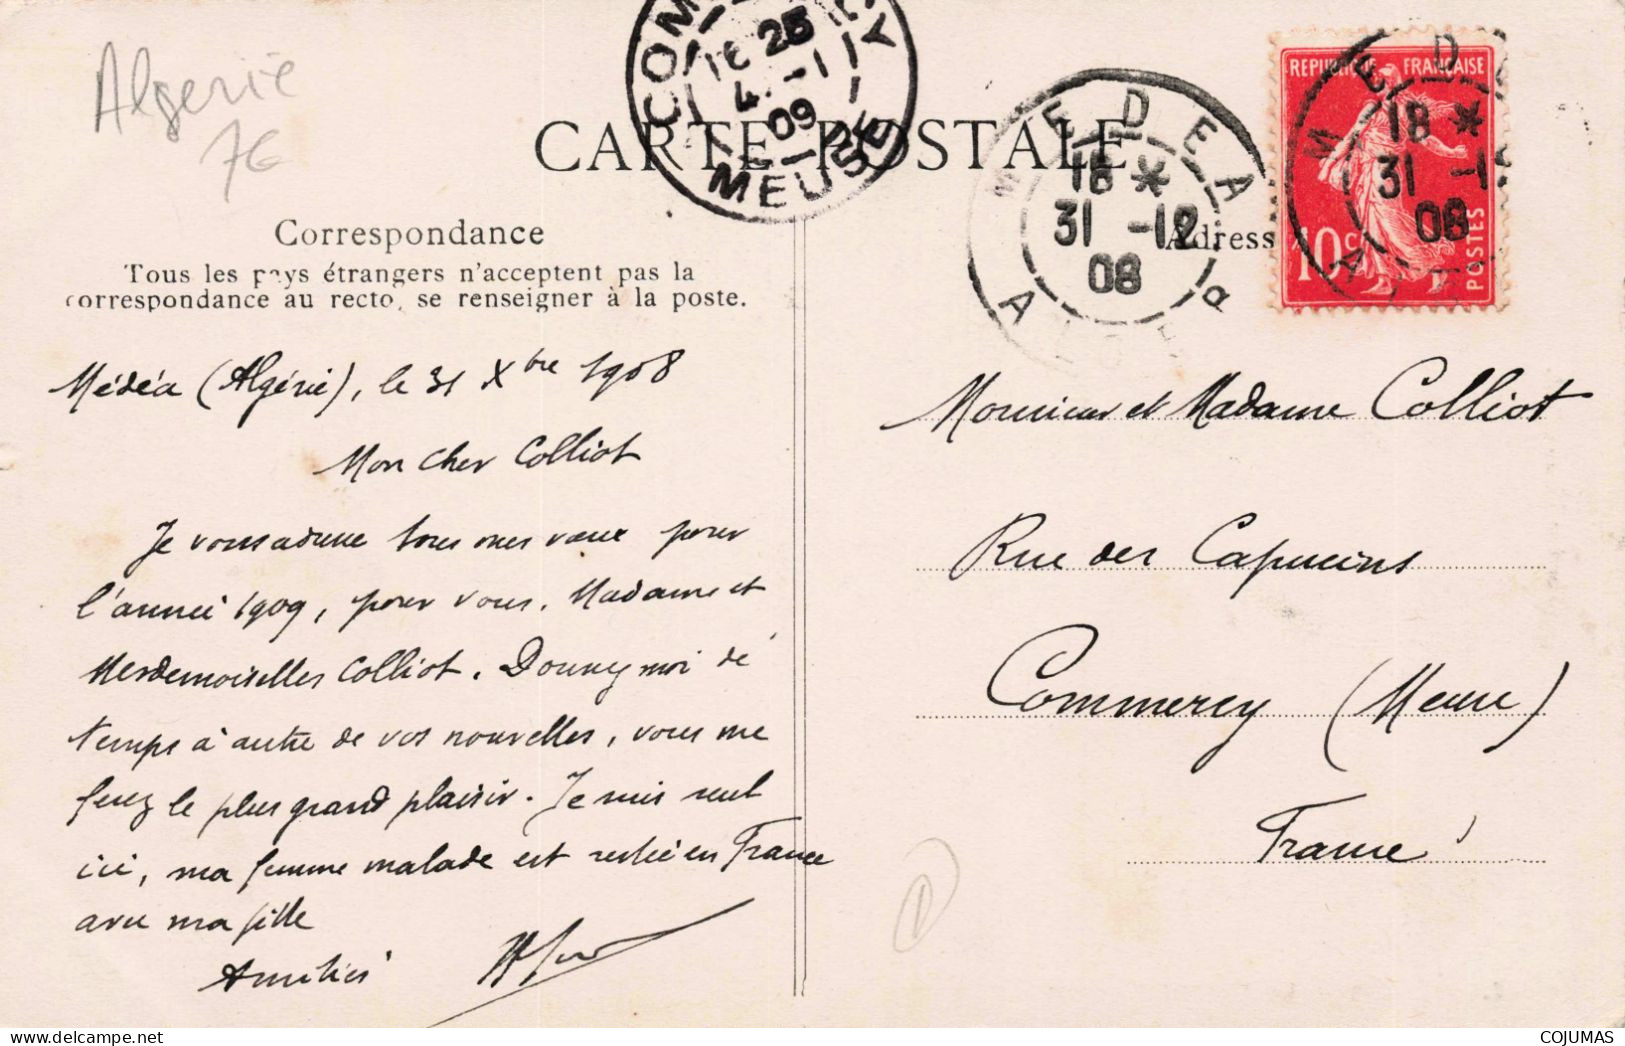 Algerie
7€
COMMERCY
16 25
4 -1
09
MEUSE
CARTE POSTALE
MEDEA
18 *
31 -12
08
REPUBLIQUE FRANCAISE
10 c.
POSTES
MEDEA
18 *
31 -1
08
Correspondance
Tous les pays étrangers n'acceptent pas la
correspondance au recto, se renseigner à la poste.
Adresse
Médéa (Algérie), le 31 Xbre 1908
Mon cher Colliot
Je vous adresse tous mes vœux pour
l'année 1909, pour vous, Madame et
Mesdemoiselles Colliot. Donnez moi de
temps à autre de vos nouvelles, vous me
ferez le plus grand plaisir. Je suis seul
ici, ma femme malade est restée en France
avec ma fille
Amitiés
Monsieur et Madame Colliot
Rue des Capucins
Commercy (Meuse)
France
COJUMAS